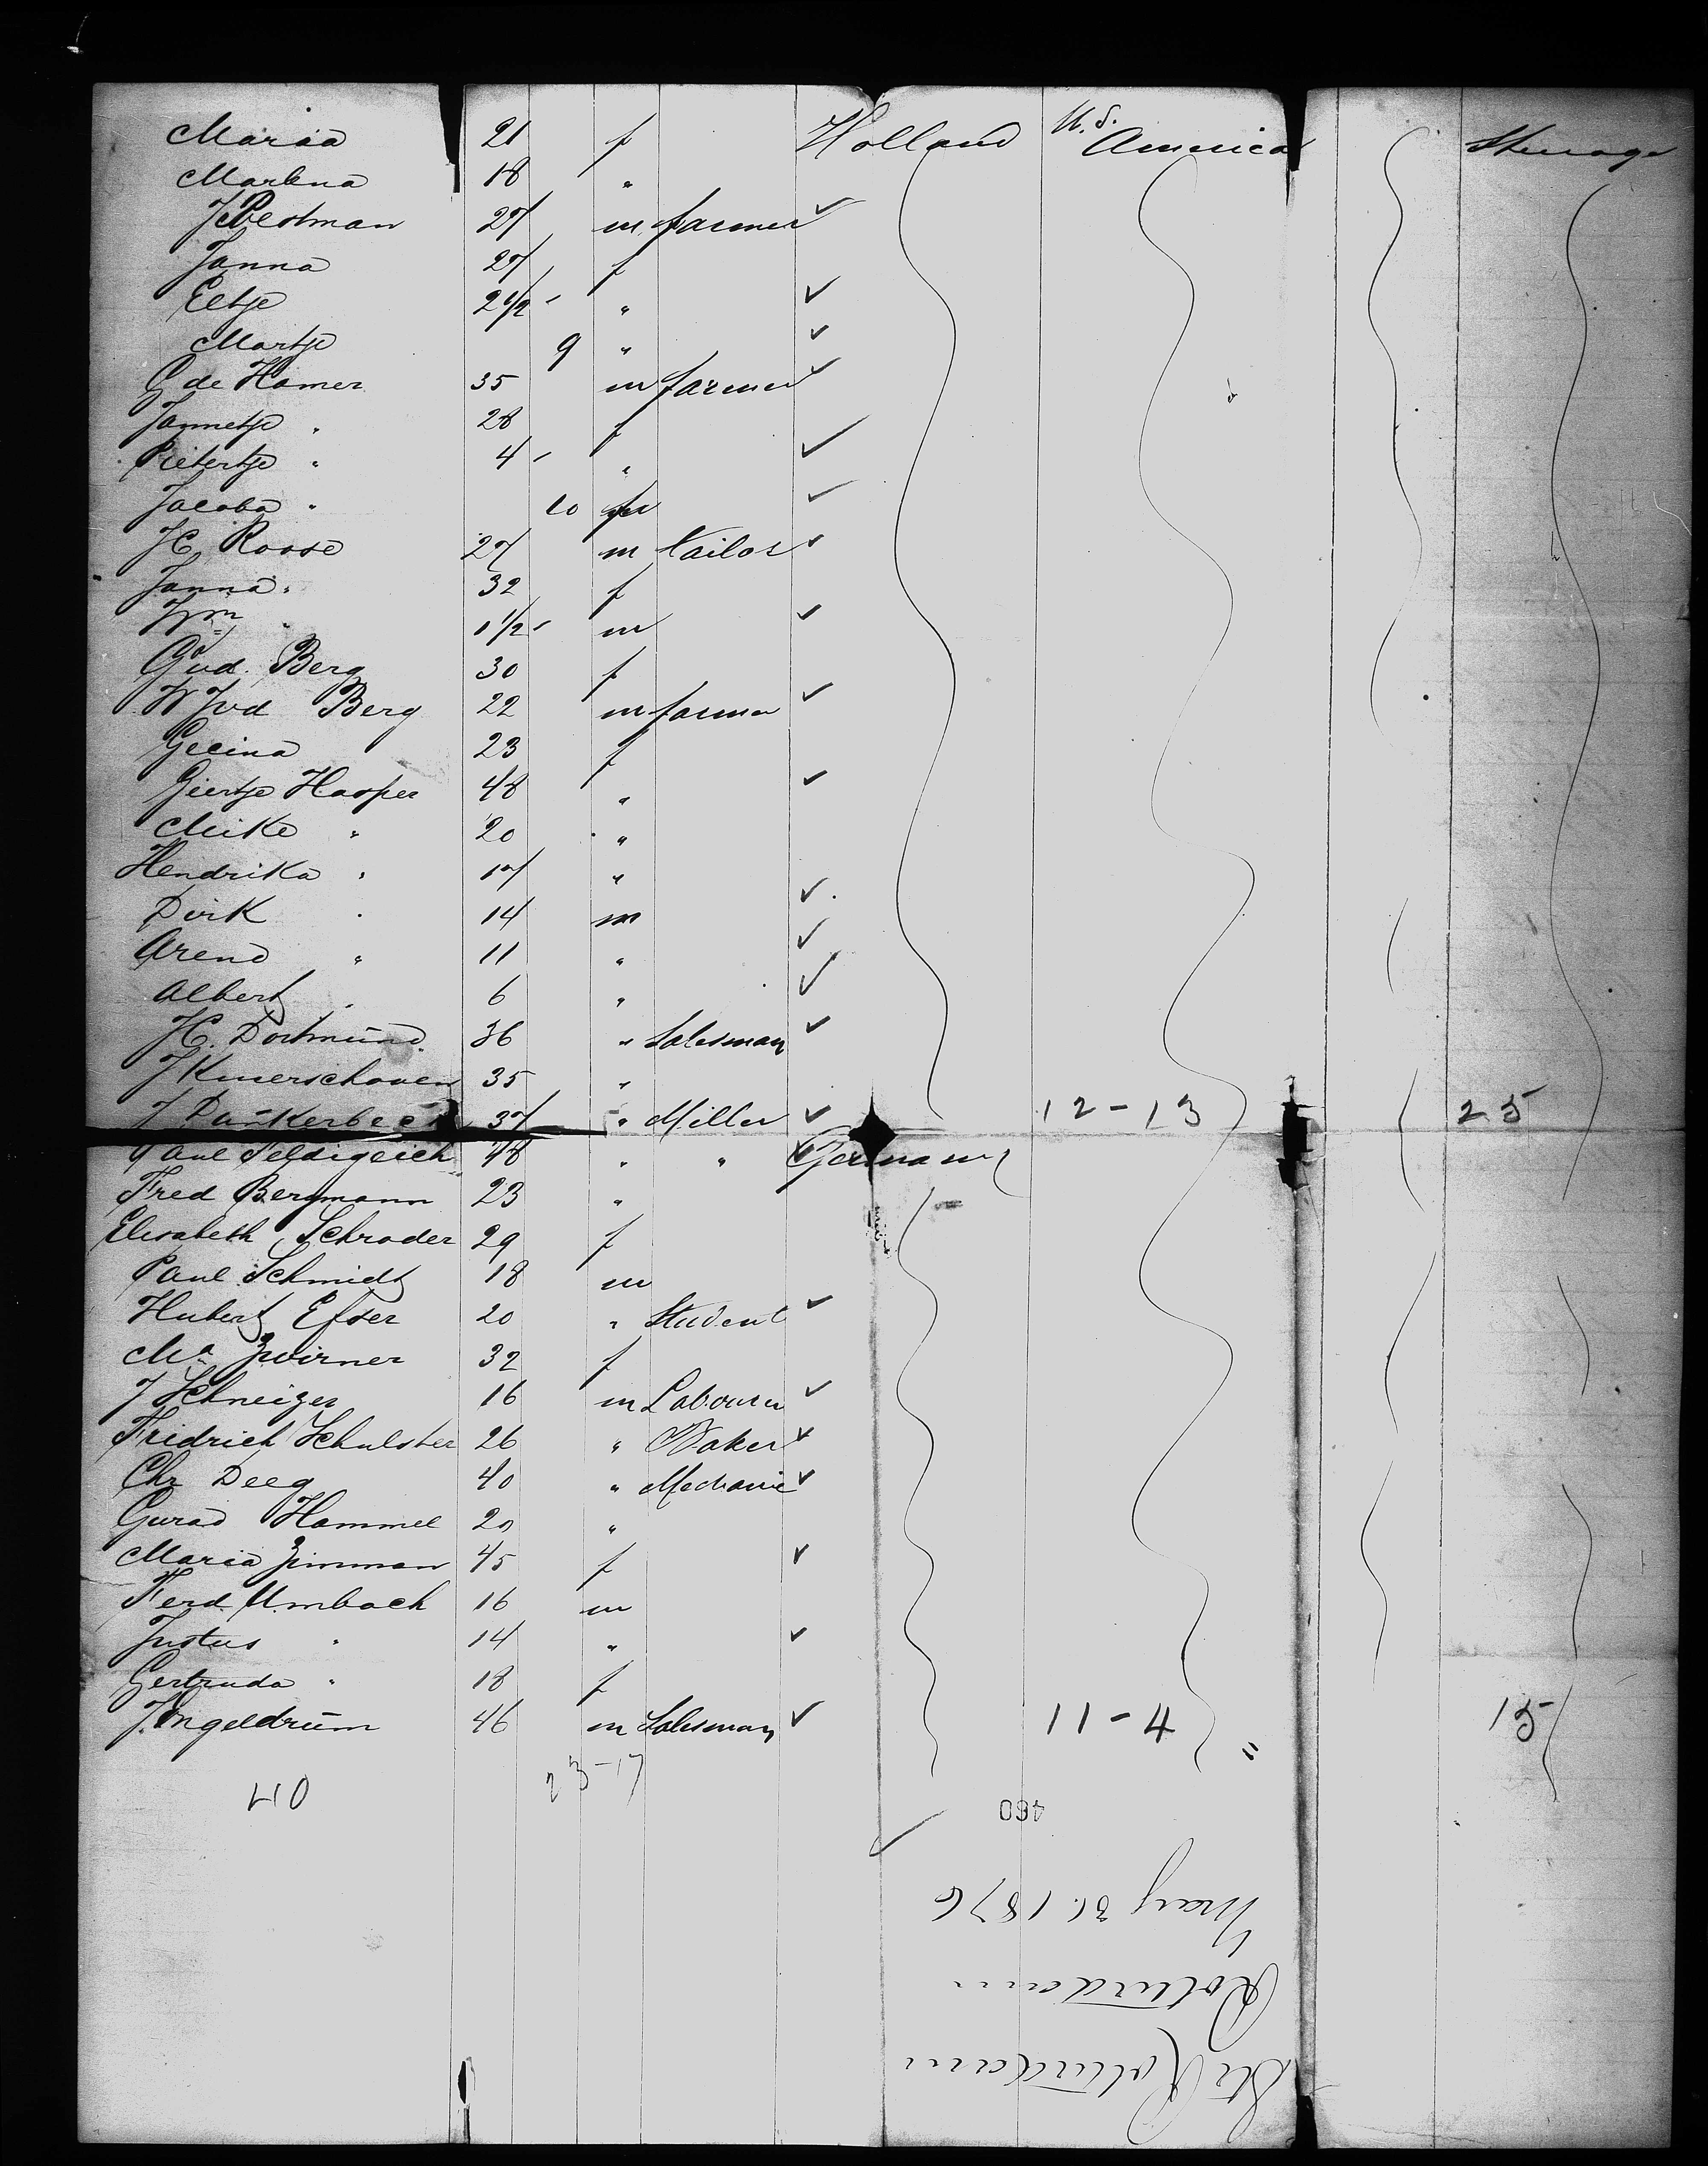 Maria 21 f Holland U.S. America Steerage
Marlena 18 "
J Pestman 27 m farmer ✓
Janna 27 f
Eltje 2 1/2 - " ✓
Martje 9 " ✓
G de Hamer 35 m farmer ✓
Jannetje " 28 f
Pietertje " 4 - " ✓
Jacoba " 10 ✓
H Roose 27 m tailor ✓
Janna " 32 f
Wm " 1 1/2 - m ✓
G vd. Berg 30 f
W J vd Berg 22 m farmer ✓
Gecina 23 f
Geertje Hasper 48 " ✓
Meike " 20 "
Hendrika " 17 " ✓
Dirk " 14 m ✓
Arend " 11 " ✓
Albert " 6 " ✓
H. Dortmund 36 " Salesman ✓
35 "
J Dunkerbeck 37 " Miller ✓ 12-13 25
Paul 48 " " Germany
Fred Bergmann 23 "
Elisabeth Schroder 29 f
Paul Schmidt 18 m
Hubert Esser 20 " Student ✓
Ma Zwirner 32 f
J Schneizer 16 m Labourer ✓
Fridrich Schulster 26 " Baker ✓
Chr Deeg 40 " Mechanic ✓
Gerad Hammel 20 "
Maria Zimman 45 f ✓
Ferd Umbach 16 m
Justus " 14 " ✓
Gertruda " 18 f
J. Ingeldrum 46 m Salesman ✓ 11-4 = 15
40 23-17
460
May 31. 1876
Rotterdam
Str Rotterdam